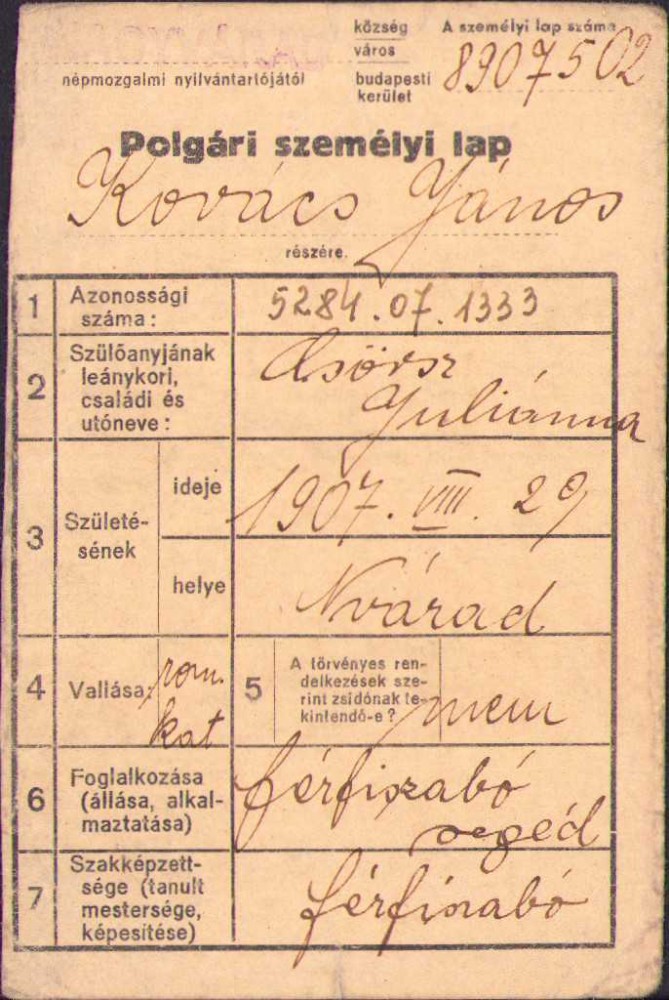 község A személyi lap száma
város
népmozgalmi nyilvántartójától budapesti 8907502
kerület
Polgári személyi lap
Kovács János
részére.
1 Azonossági
száma: 5284.07.1333
2 Szülőanyjának
leánykori,
családi és
utóneve:
Csörsz
Juliánna
3 Születé-
sének
ideje 1907. VIII. 29
helye Nvárad
4 Vallása: rom.
kat
5 A törvényes ren-
delkezések sze-
rint zsidónak te-
kintendő-e? nem
6 Foglalkozása
(állása, alkal-
maztatása)
férfiszabó
segéd
7 Szakképzett-
sége (tanult
mestersége,
képesítése)
férfiszabó